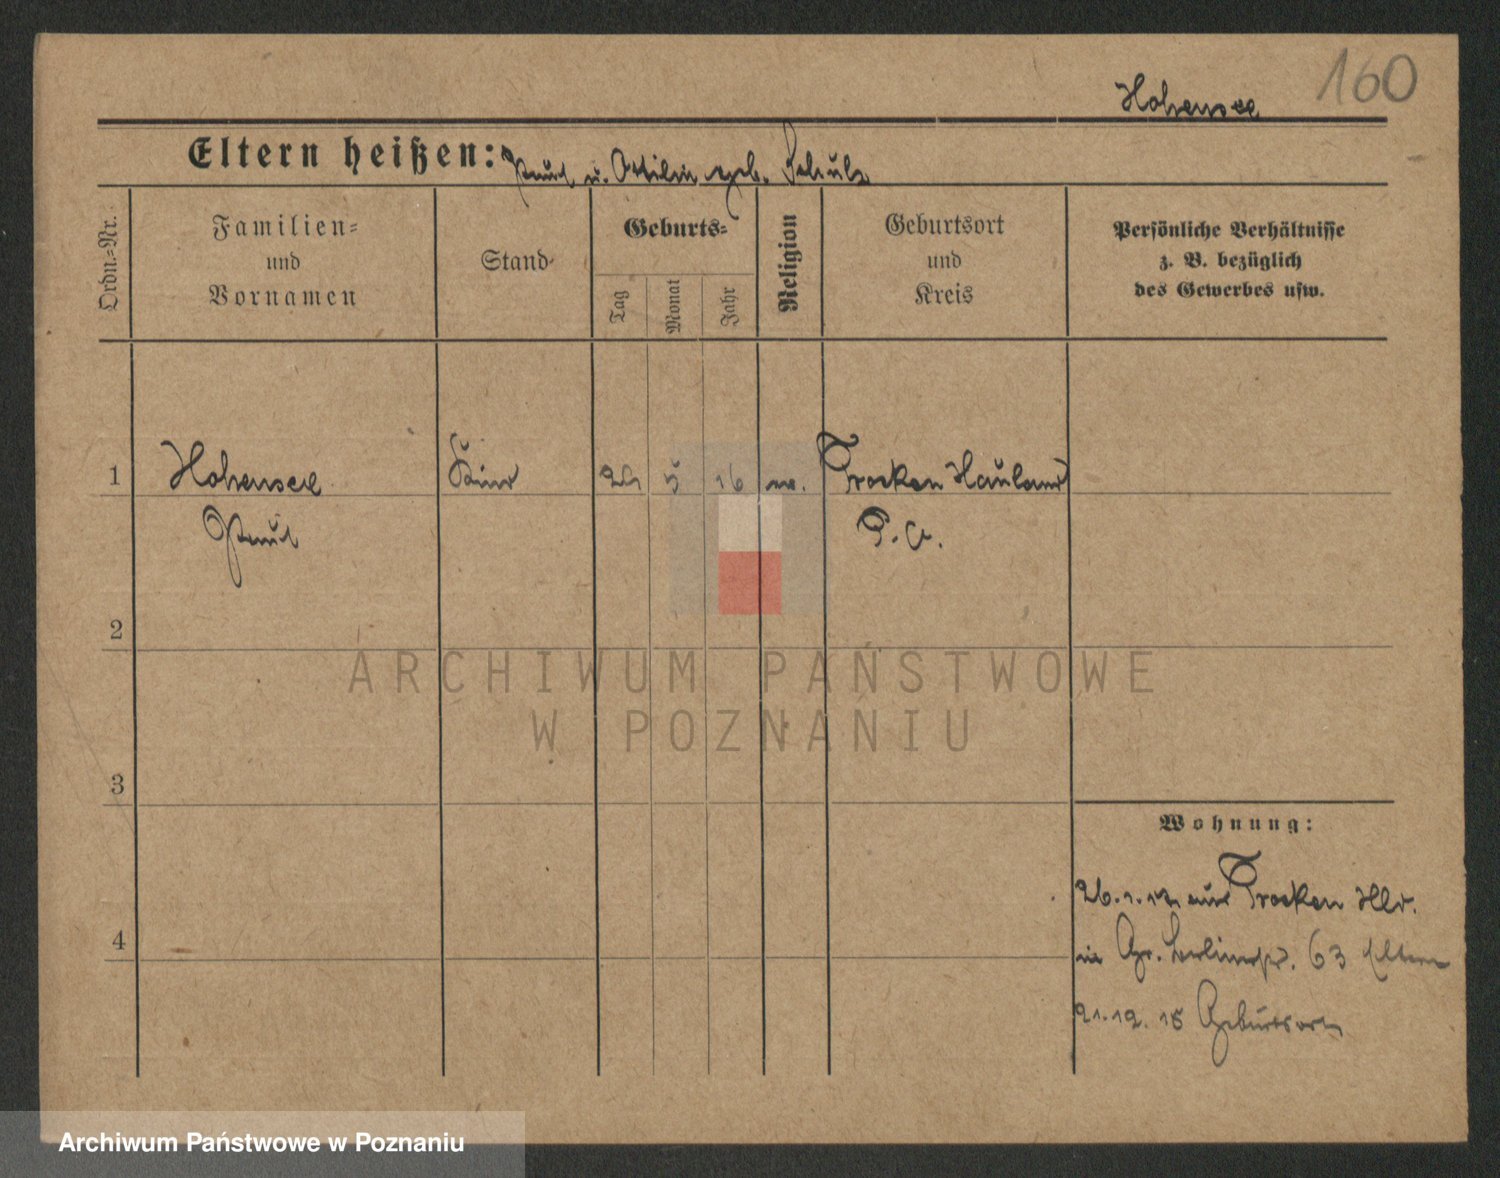 160
Hohensee
Eltern heißen: Paul u. Ottilie geb. Schulz
Ordn.-Nr.
Familien-
und
Vornamen
Stand
Geburts-
Tag
Monat
Jahr
Religion
Geburtsort
und
Kreis
Persönliche Verhältnisse
z. B. bezüglich
des Gewerbes usw.
1 Hohensee Kind 5 16 ev. Trocken Hauland
Paul P. O.
2
3
4
Wohnung:
26.1.17 aus Trocken Hld.
in Gr. Berlinerstr. 63 Eltern
21.12.18 Geburtsort
ARCHIWUM PAŃSTWOWE
W POZNANIU
Archiwum Państwowe w Poznaniu